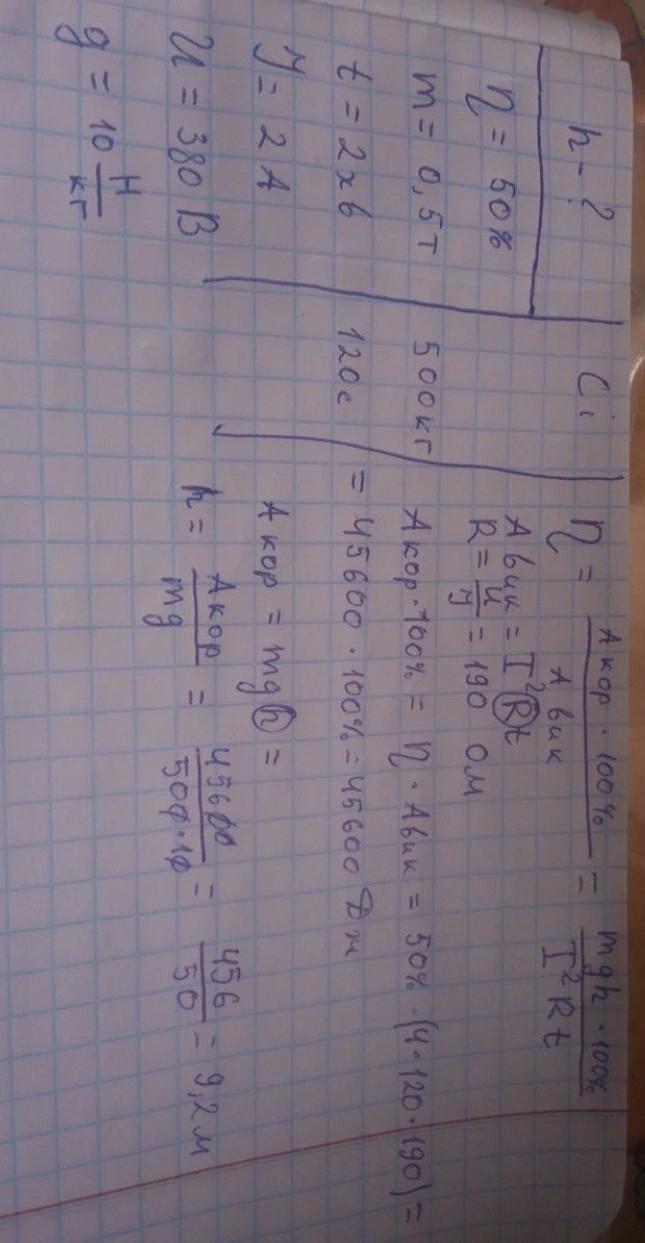 h - ?
η = 50%
m = 0,5 т
t = 2 хв
У = 2 А
U = 380 В
g = 10 Н/кг
Сі
500 кг
120 с
η = Aкор · 100% / Aвик = mgh · 100% / I²Rt
Aвик = I²Rt
R = U/У = 190 Ом
Aкор · 100% = η · Aвик = 50% · (4 · 120 · 190) =
= 45600 · 100% = 45600 Дж
Aкор = mgh =
h = Aкор / mg = 45600 / 500 · 10 = 456 / 50 = 9,2 м